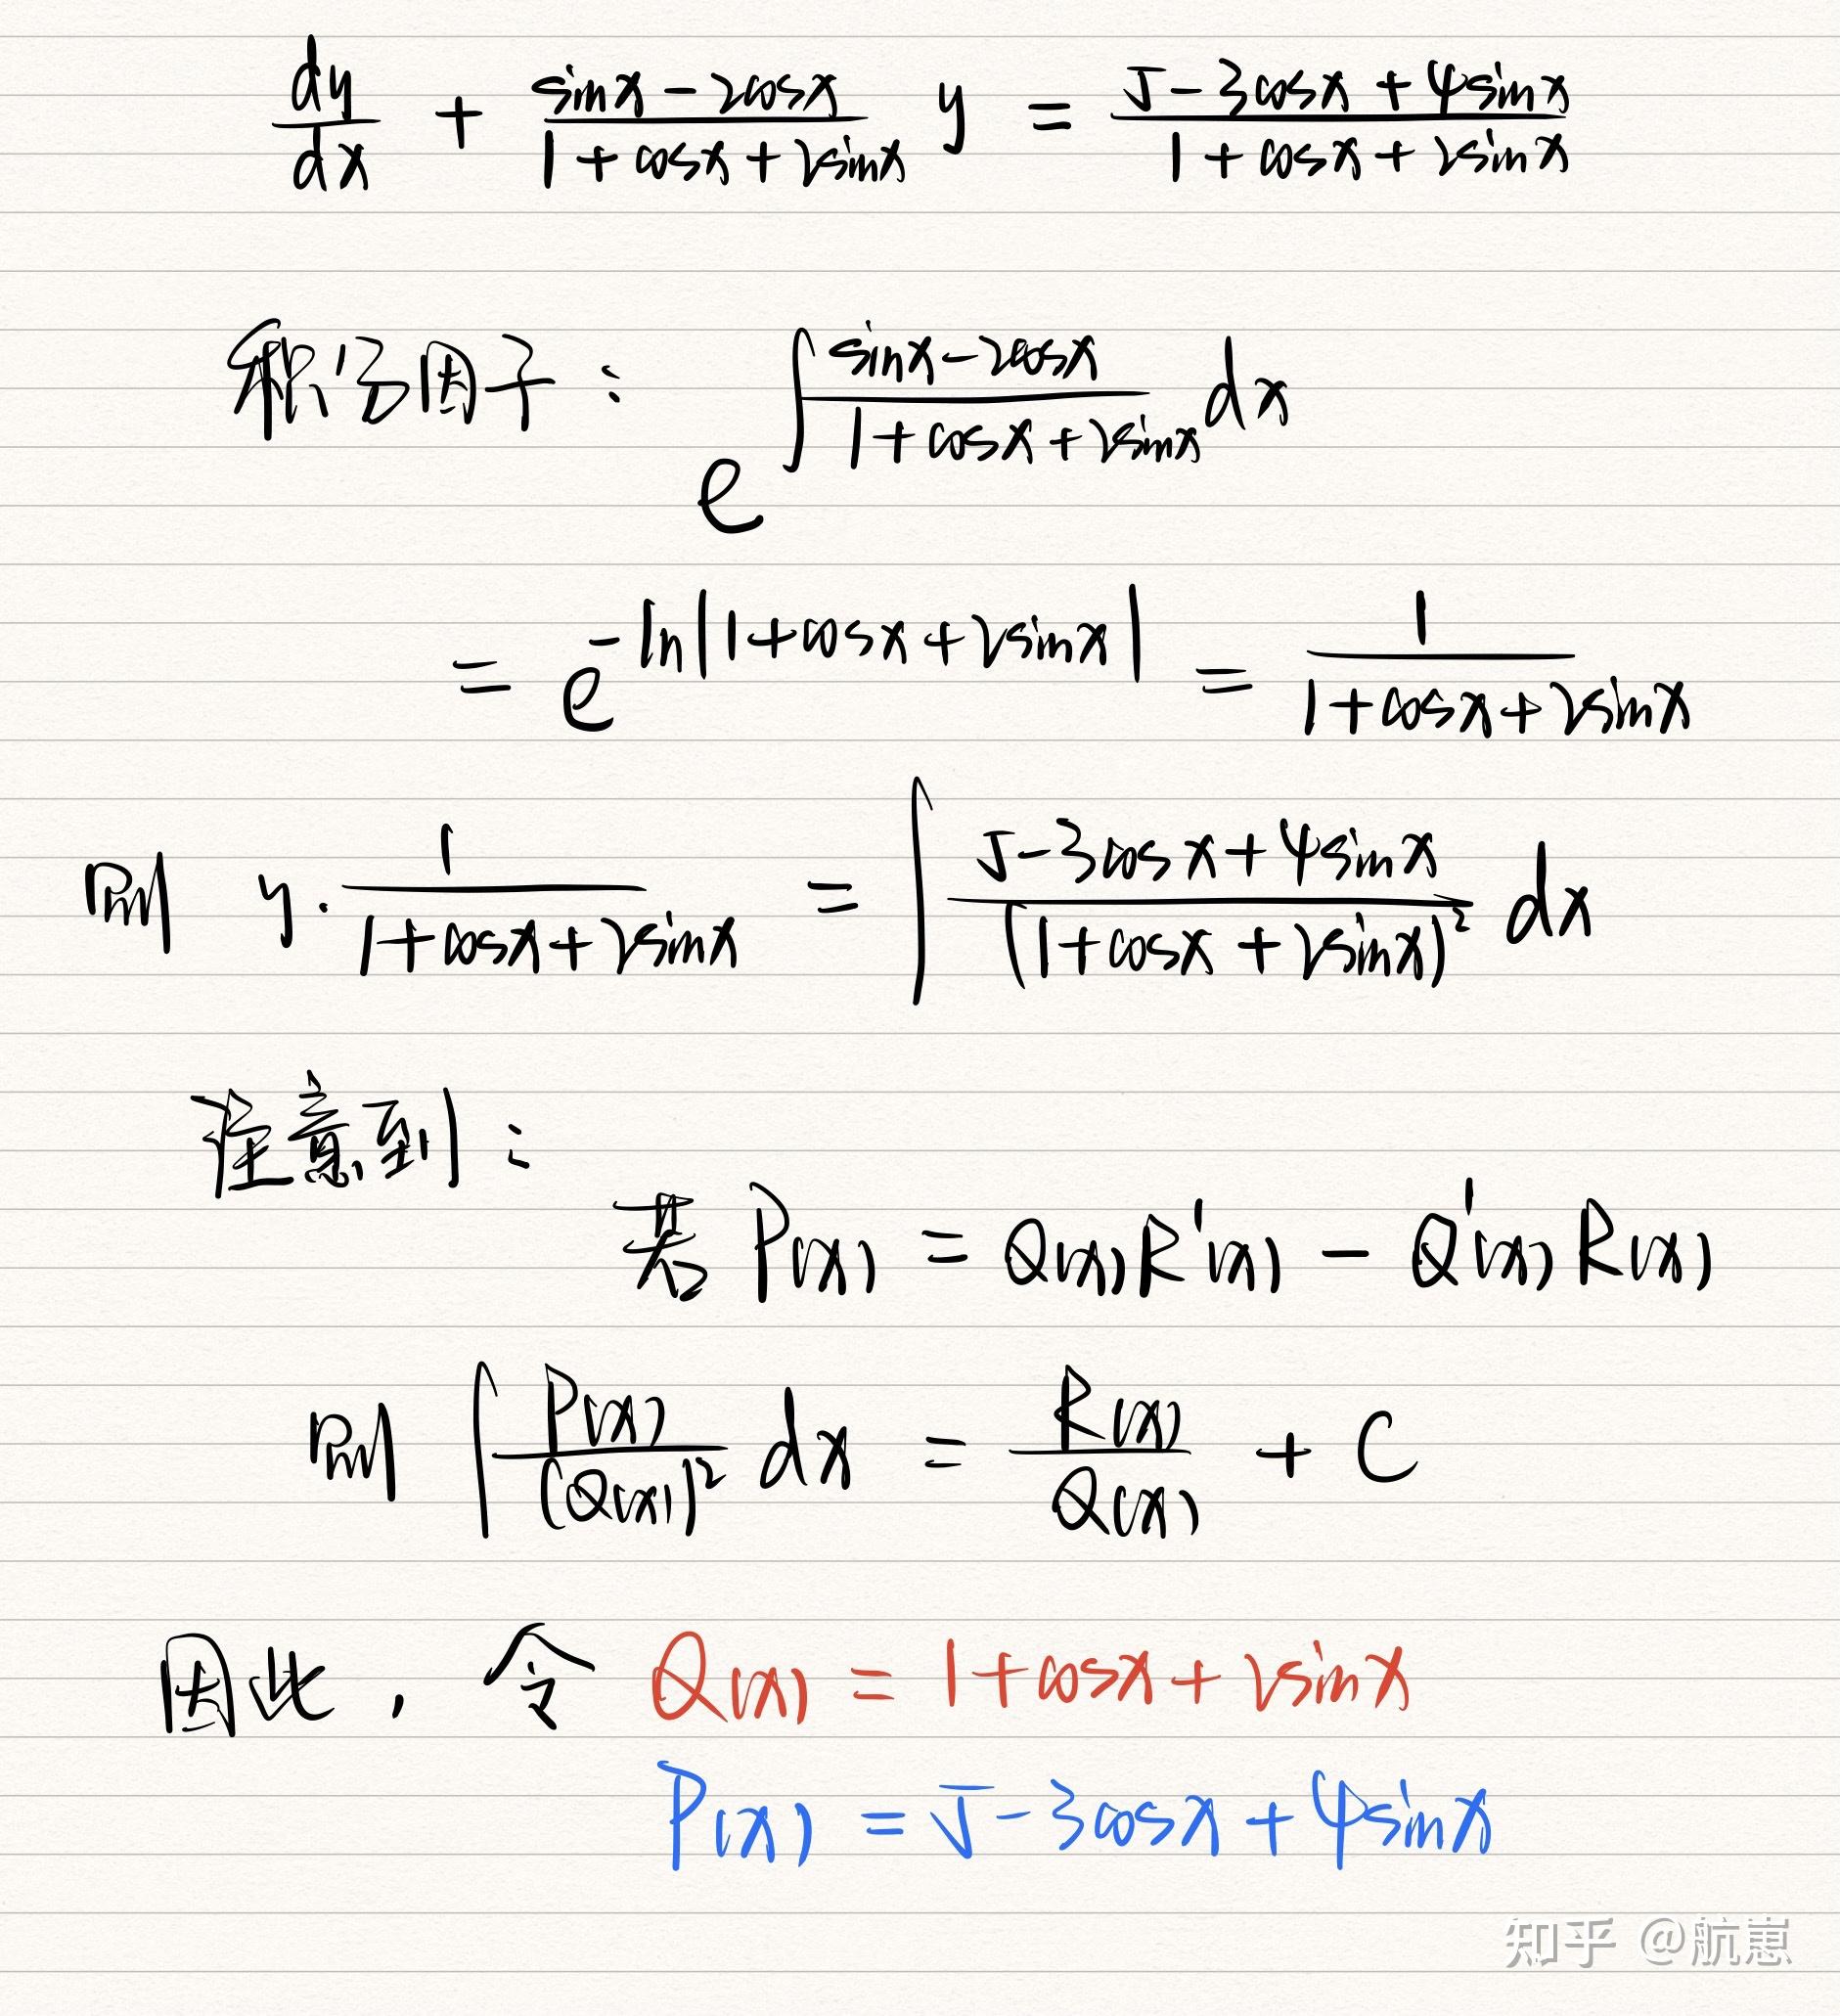 dy/dx + (sinx-2cosx)/(1+cosx+2sinx) y = (5-3cosx+4sinx)/(1+cosx+2sinx)
积分因子: e^{∫(sinx-2cosx)/(1+cosx+2sinx) dx}
= e^{-ln|1+cosx+2sinx|} = 1/(1+cosx+2sinx)
则 y·1/(1+cosx+2sinx) = ∫(5-3cosx+4sinx)/(1+cosx+2sinx)² dx
注意到:
若 P(x) = Q(x)R'(x) - Q'(x)R(x)
则 ∫P(x)/(Q(x))² dx = R(x)/Q(x) + C
因此, 令 Q(x) = 1+cosx+2sinx
P(x) = 5-3cosx+4sinx
知乎 @航崽